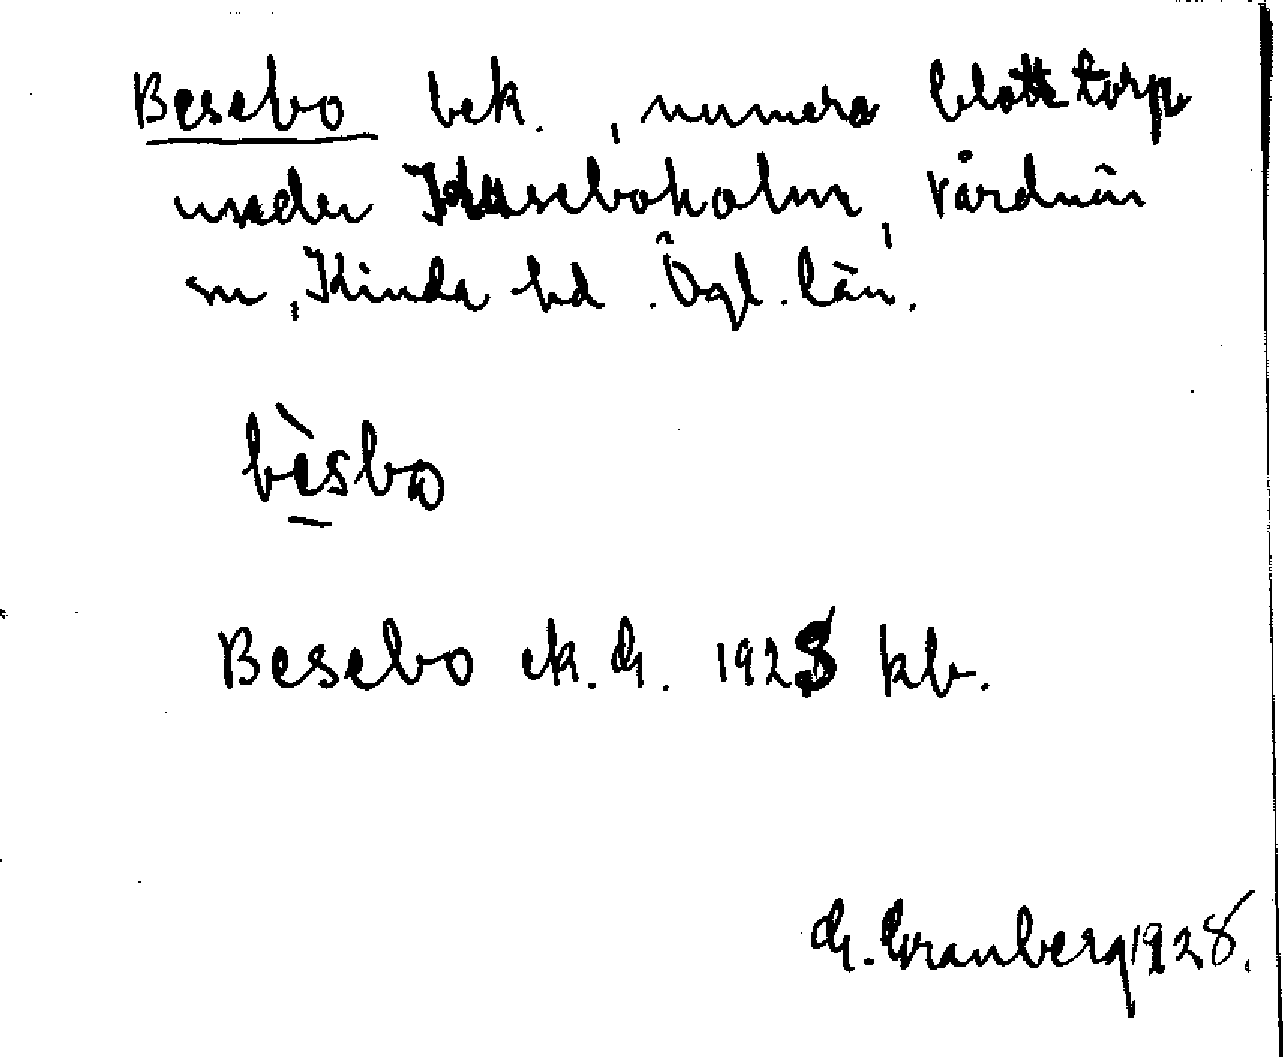 Besebo bek., numera blott torp
under Kuseboholm, Vårdnäs
sn, Kinda hd. Ögl. län.
bèsbo
Besebo ek. G. 1928 kb.
G. Granberg 1928.